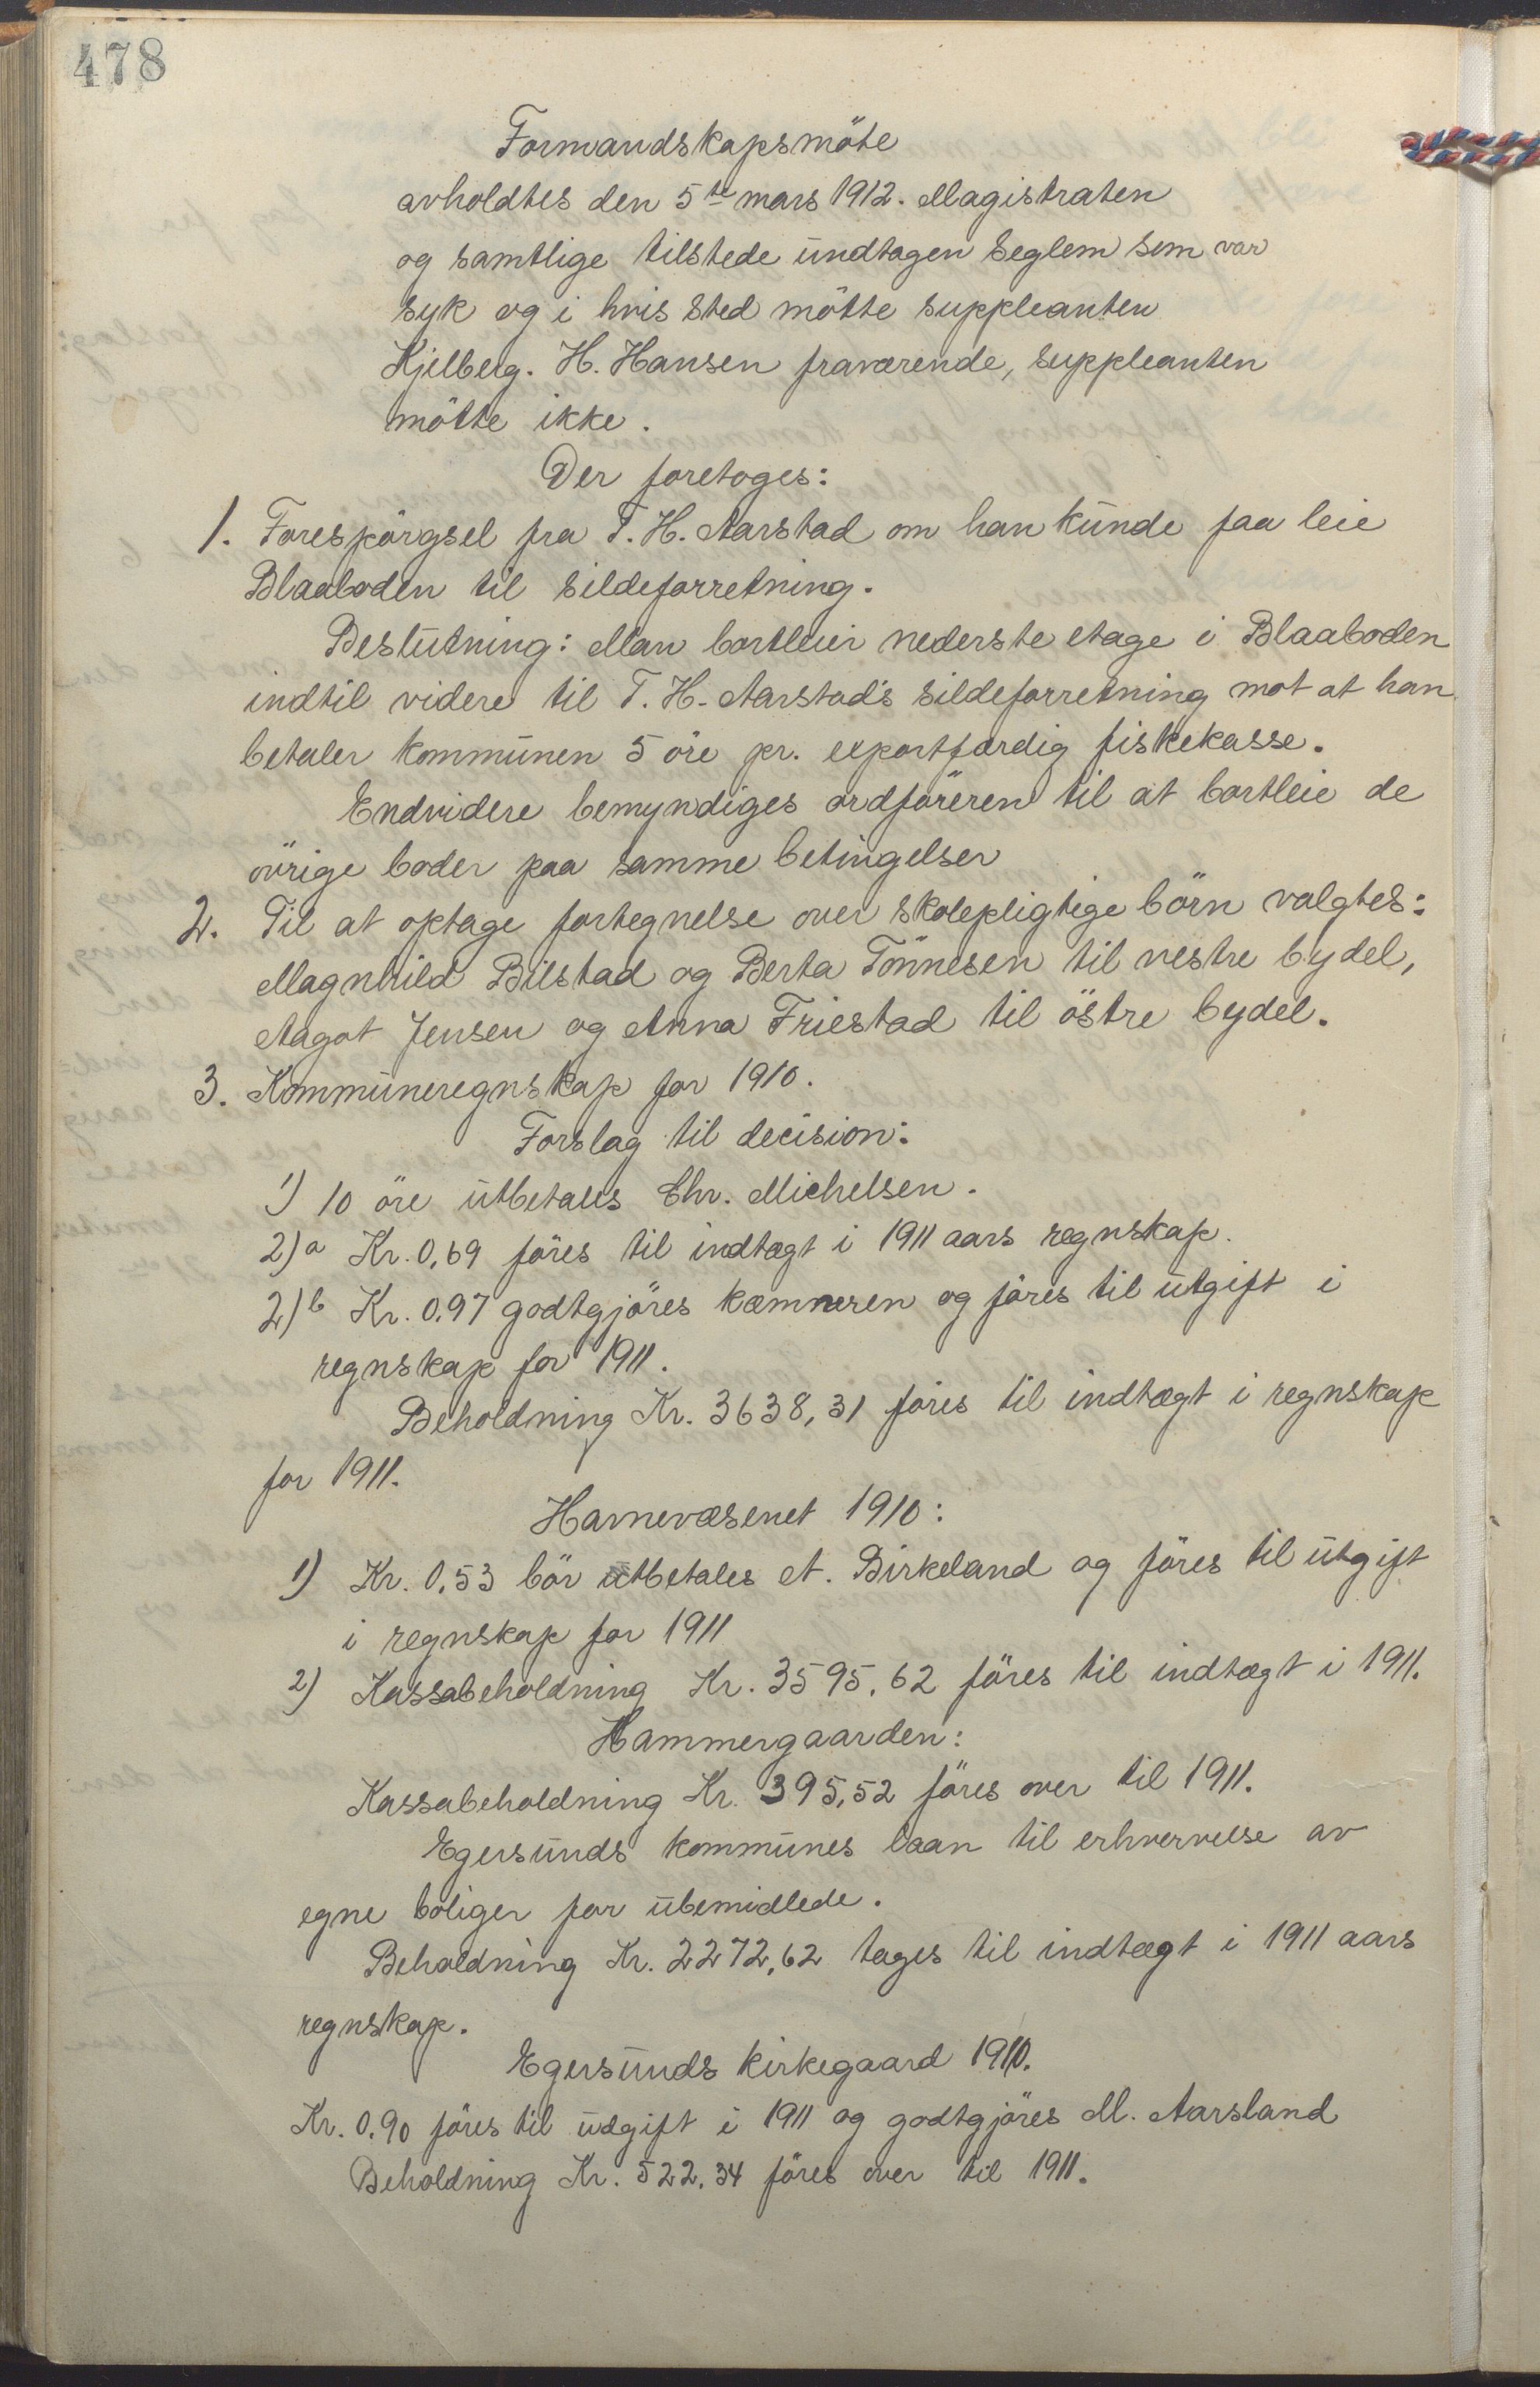 478
Formandskapsmöte
avholdtes den 5te mars 1912. Magistraten
og samtlige tilstede undtagen Seglem som var
syk og i hvis sted mötte suppleanten
Kjelberg. H. Hansen fraværende, suppleanten
mötte ikke.
Der foretoges:
1. Forespörgsel fra T. H. Aarstad om han kunde faa leie
Blaaboden til sildeforretning.
Beslutning: Man bortleier nederste etage i Blaaboden
indtil videre til T. H. Aarstad's sildeforretning mot at han
betaler kommunen 5 öre pr. exportfærdig fiskekasse.
Endvidere bemyndiges ordföreren til at bortleie de
övrige boder paa samme betingelser
2. Til at optage fortegnelse over skolepligtige börn valgtes:
Magnhild Bilstad og Berta Tönnesen til vestre bydel,
Aagot Jensen og Anna Friestad til östre bydel.
3. Kommuneregnskap for 1910.
Forslag til decision:
1) 10 öre utbetales Chr. Michelsen.
2)a Kr. 0,69 föres til indtægt i 1911 aars regnskap.
2)b Kr. 0,97 godtgjöres kæmneren og föres til utgift i
regnskap for 1911.
Beholdning Kr. 3638,31 föres til indtægt i regnskap
for 1911.
Havnevæsenet 1910:
1) Kr. 0,53 bör utbetales A. Birkeland og föres til utgift
i regnskap for 1911
2) Kassabeholdning Kr. 3595,62 föres til indtægt i 1911.
Hammergaarden:
Kassabeholdning Kr. 395,52 föres over til 1911.
Egersunds kommunes laan til erhvervelse av
egne boliger for ubemidlede.
Beholdning Kr. 2272,62 tages til indtægt i 1911 aars
regnskap.
Egersunds kirkegaard 1910.
Kr. 0,90 föres til udgift i 1911 og godtgjöres M. Aarsland
Beholdning Kr. 522,34 föres over til 1911.